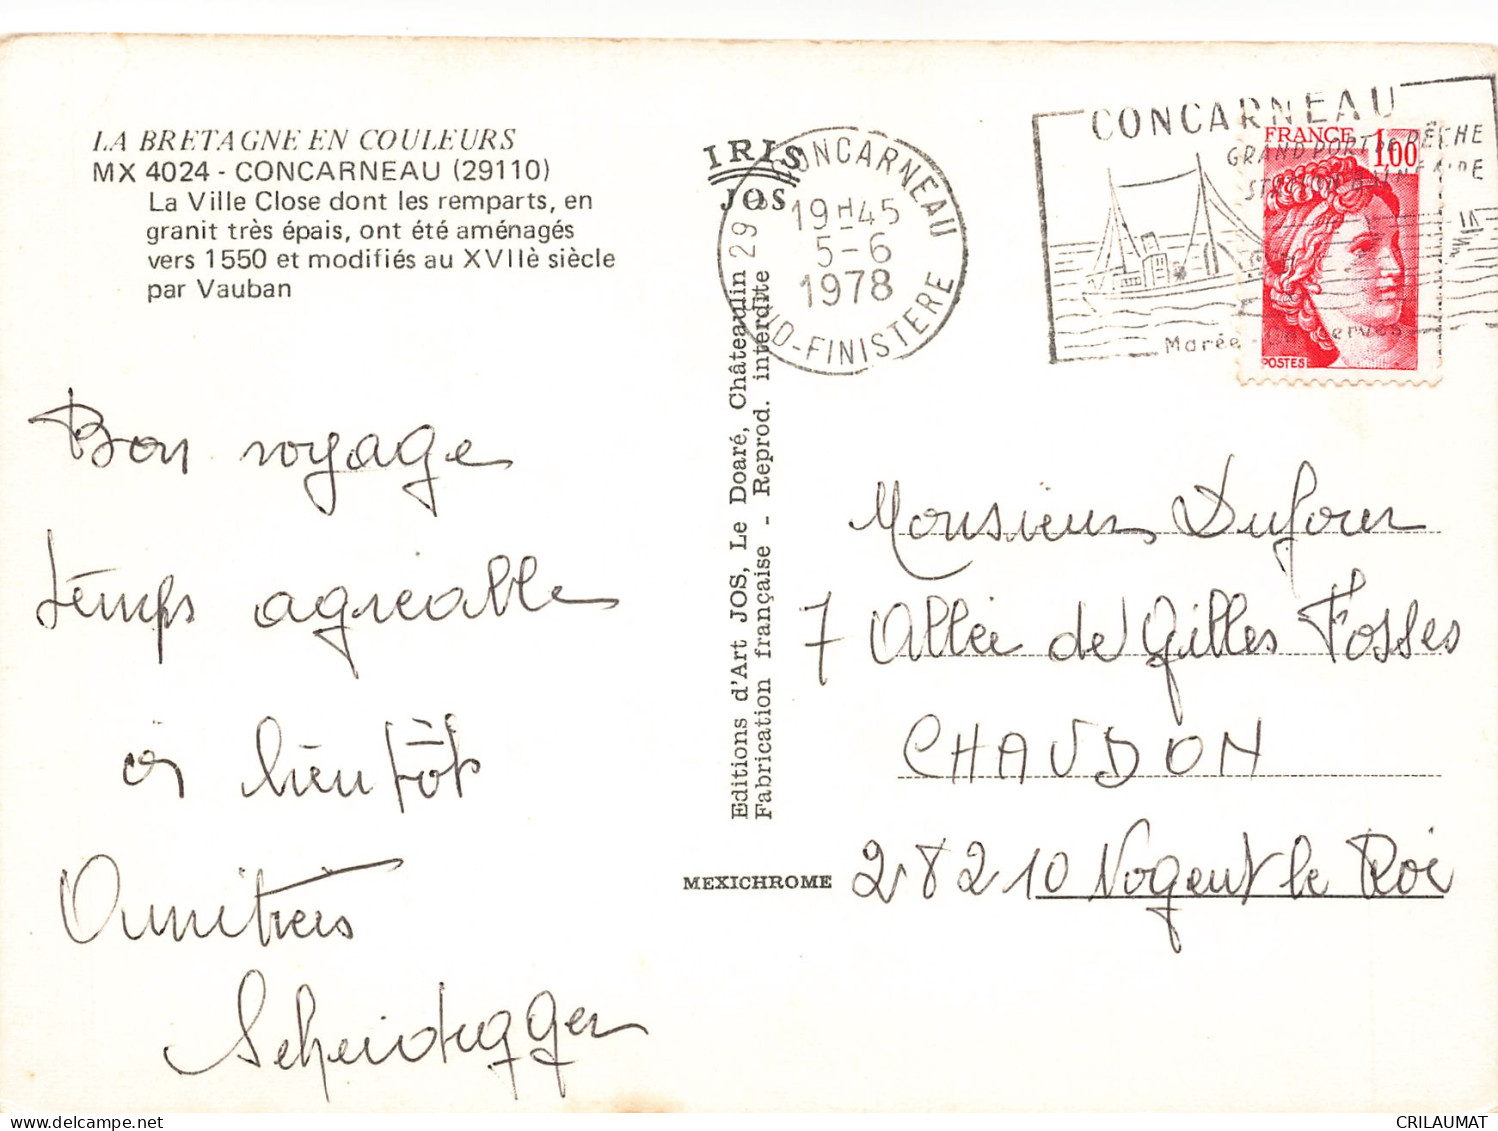 LA BRETAGNE EN COULEURS
MX 4024 - CONCARNEAU (29110)
La Ville Close dont les remparts, en
granit très épais, ont été aménagés
vers 1550 et modifiés au XVIIè siècle
par Vauban
Bon voyage
temps agreable
à bientôt
Amitiés
Scheidegger
IRIS
JOS
Editions d'Art JOS, Le Doaré, Châteaulin
Fabrication française - Reprod. interdite
MEXICHROME
29 CONCARNEAU
19H45
5-6
1978
SUD-FINISTERE
CONCARNEAU
GRAND PORT DE PÊCHE
Marée
FRANCE 1,00
POSTES
Monsieur Dufour
7 Allée de Gilles Fosses
CHAUDON
28210 Nogent le Roi
CRILAUMAT